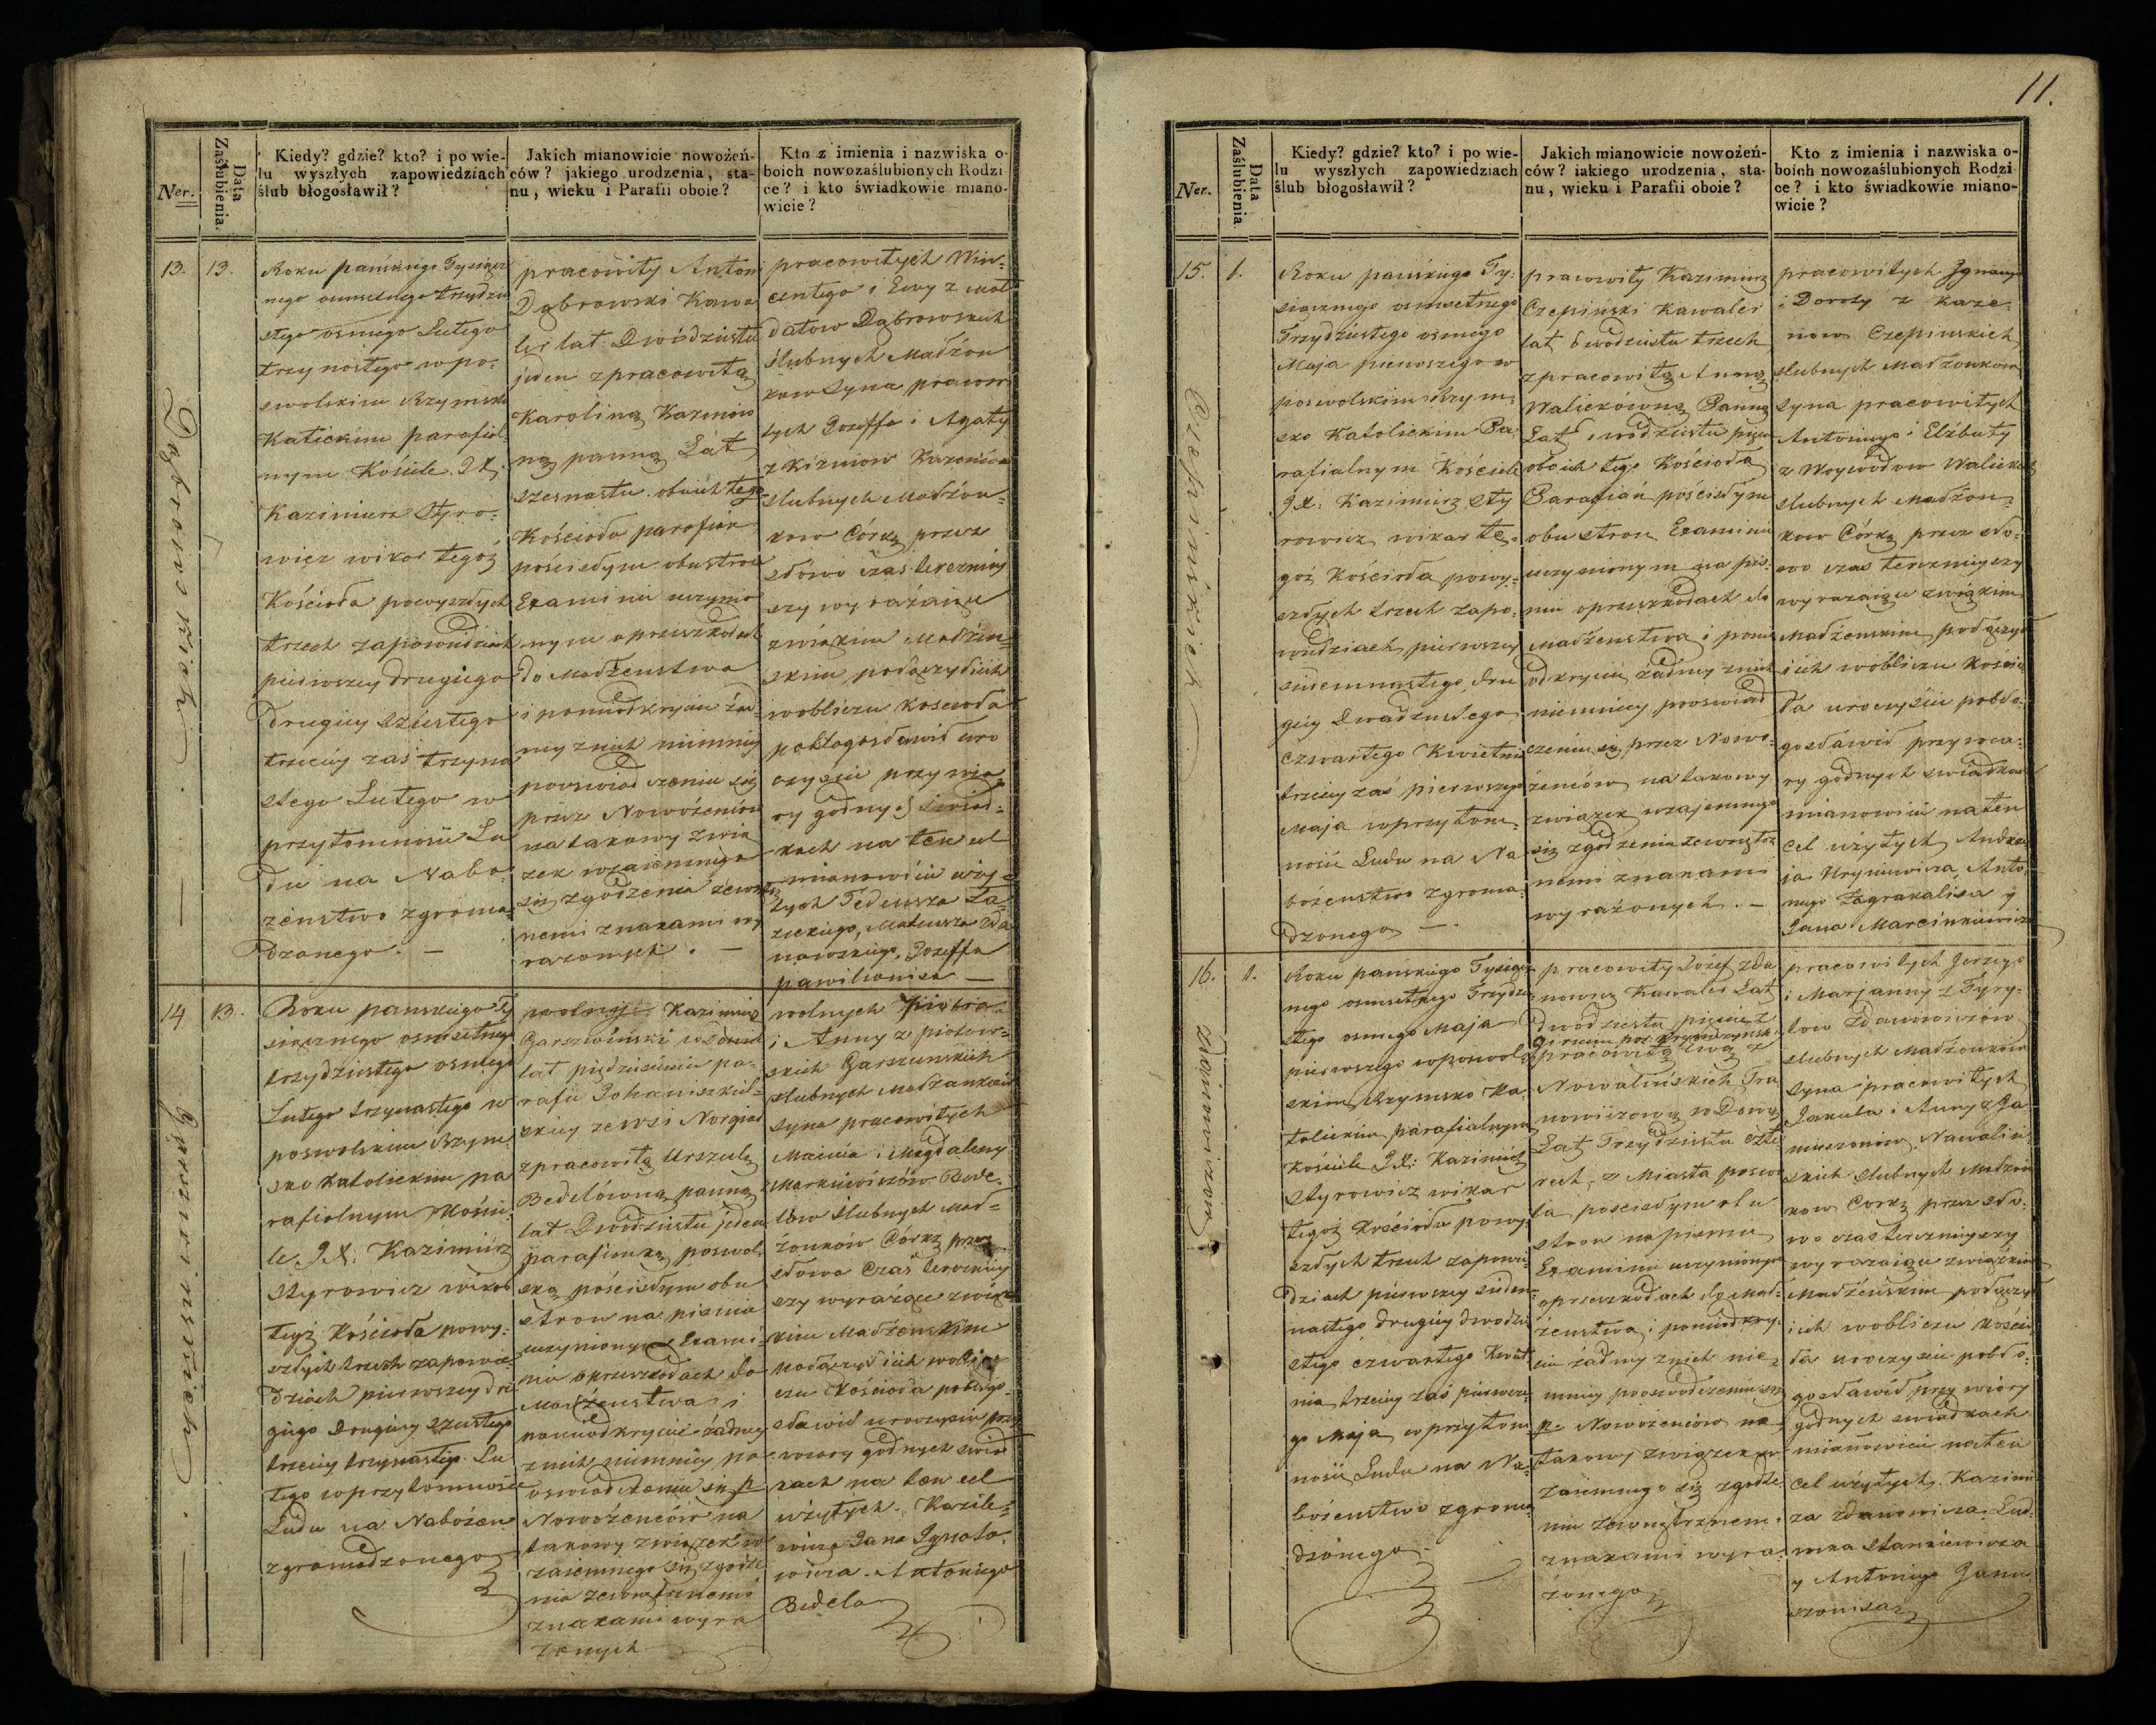 11.
Ner.
Data Zaślubienia.
Kiedy? gdzie? kto? i po wie-
lu wyszłych zapowiedziach
ślub błogosławił?
Jakich mianowicie nowożeń-
ców? jakiego urodzenia, sta-
nu, wieku i Parafii oboie?
Kto z imienia i nazwiska o-
boich nowozaślubionych Rodzi
ce? i kto świadkowie miano-
wicie?
13.
13.
Dąbrowskich
Roku pańskiego Tysiącz
nego osmsetnego trzydzie
stego osmego Lutego
trzynastego w po-
swolskim Rzymsko
Katickim parafial-
nym Kościele JX.
Kazimierz Styro-
wicz wikar tegoż
Kościoła powyszłych
trzech zapowiedziach
pierwszey drugiego
drugiey szóstego
trzeciey zaś trzyna
stego Lutego w
przytomności Lu
du na Nabo-
żeństwo zgroma-
dzonego. —
pracowity Antoni
Dąbrowski Kawa
ler lat Dwódziestu
jeden z pracowitą
Karoliną Kazenów
ną panną Lat
szesnastu oboich tego
Kościoła parafian
pościsłym obustron
Examinie uczynio
nym oprzeszkodach
do Małżeństwa
i ponieodkryciu żad-
ney znich niemniey
pooswiadczeniu się
przez Nowożeniów
na takowy zwią
zek wzaiemnego
się zgodzenia zewnętrz
nemi znakami wy
rażonych. —
pracowitych Win-
centego i Ewy z Moł
datow Dąbrowskich
ślubnych Małżon
kow Syna pracow
tych Jozeffa i Agaty
z Kiżniow Kazenów
slubnych Małżon-
kow Córkę przez
słowo czas terazniey
szy wyrażaiące
związkiem Małżeń-
skim połączył ich
wobliczu Koscioła
pobłogosławił uro
czyscie przy wia
ry godnych swiad-
kach na ten cel
mianowicie użyr
tych Tedeusza Ła-
zickiego, Mateusza Zda
nowskiego, Jozeffa
pawilionisa —
14
13.
Garszwinskich
Roku pańskiego Ty
siącznego osmsetnego
trzydziestego osmego
Lutego trzynastego w
poswolskim Rzym
sko Katolickim pa
rafialnym Koście
le JX. Kazimierz
Styrowicz wikar
tegoż Kościoła powy-
szłych trzech zapowie-
dziach pierwszey dru
giego Drugiey szustego
trzeciey trzynastego Lu
tego w przytomności
Ludu na Nabożeń
zgromadzonego
wolny Kazimierz
Garszwiński wdowiec
lat pięćdziesiąt pa-
rafii Johaniszkiel-
skiey ze wsi Norgiad
z pracowitą Urszulą
Bedelówną panną
lat Dwódziestu jeden
parafianką poswol-
ską pościsłym obu
stron na pismie
uczynionym Exami-
nie oprzeszkodach do
Małżeństwa i
ponieodkryciu żadney
znich niemniey po
oswiadczeniu się p
Nowożeńców na
takowy związek w
zaiemnego się zgodze
nia zewnętrznemi
znakami wyra
żonych
wolnych Piotra
i Anny z piotrow-
skich Garszwinskich
slubnych Małżonków
syna pracowitych
Macieia i Magdaleny
z Markiewiczów Bede-
low ślubnych Mał-
żonków Córkę przez
słowo Czas terazniey
szy wyrażaiące związ
kiem Małżeńskim
połączył ich wobli
czu Kościoła pobłogo-
sławił uroczyscie przy
wiary godnych swiad
kach na ten cel
użytych. Kazile-
wicza Jana Ignato-
wicza. Antoniego
Bedela
Ner.
Data Zaślubienia.
Kiedy? gdzie? kto? i po wie-
lu wyszłych zapowiedziach
ślub błogosławił?
Jakich mianowicie nowożeń-
ców? iakiego urodzenia, sta-
nu, wieku i Parafii oboie?
Kto z imienia i nazwiska o-
boich nowozaślubionych Rodzi
ce? i kto świadkowie miano-
wicie?
15.
1.
Czepinskich
Roku pańskiego Ty-
siącznego osmsetnego
Trzydziestego osmego
Maja pierwszego w
poswolskim Rzym-
sko Katolickim Pa-
rafialnym Kościele
JX: Kazimierz Sty
rowicz wikar te-
goż Kościoła powy-
szłych trzech zapo-
wiedziach, pierwszey
siedemnastego, dru
giey Dwadziestego
czwartego Kwietnia
trzeciey zaś pierwszego
Maja w przytom-
ności Ludu na Na
bożeństwo zgroma
dzonego —.
pracowity Kazimierz
Czepiński Kawaler
lat dwódziestu trzech
z pracowitą Anną
Walickówną Panną
Lat dwódziestu pięciu
oboich tego Kościoła
Parafian pościsłym
obu stron Examinie
uczynionym na pis-
mie oprzeszkodach do
Małżeństwa i ponie
odkryciu żadney znich
niemniey pooswiad
czeniu się przez Nowo-
żeniów na takowy
związek wzajemnego
się zgodzenia zewnętrz
nemi znakami
wyrażonych. —
pracowitych Ignacego
i Doroty z Kaze-
now Czepinskich
slubnych Małżonkow
Syna pracowitych
Antoniego i Elżbiety
z Woywodow Walickich
slubnych Małżon-
kow Córkę przez sło-
wo czas terazniejszy
wyrazaiące związkiem
Małżenskim połączył
ich wobliczu Koście
ła uroczyscie pobło-
gosławił przy wia-
ry godnych swiadkach
mianowicie na ten
cel użytych Andrze
ja Hryniewicza, Anto
niego Zagrakalisa y
Jana Marcinkiewicza
16.
1.
Zdanowiczow
Roku pańskiego Tysiącz
nego osmsetnego Trzydzie
stego osmego Maja
pierwszego w poswol-
skim Rzymsko Ka
tolickim parafialnym
Kościele JX: Kazimierz
Styrowicz wikar
tegoż Kościoła powy
szłych trzech zapowie
dziach pierwszey siedem
nastego drugiey dwódzie
stego czwartego Kwiet
nia trzeciey zaś pierwsze
go Maja w przytom
ności Ludu na Na-
bożeństwo zgroma
dzonego
pracowity Józef Zda
nowicz Kawaler Lat
dwódziestu pięciu z
pracowitą Ewą z
Nowalińskich Tra
nowiczową wdową
Lat Trzydziestu czte
rech, z Miasta poswo
la posciesłym obu
stron na piśmie
Examinie uczynionym
oprzeszkodach do Mał-
żeństwa i ponieodkry-
ciu żadney znich nie
mniey pooswiadczeniu się
p. Nowożeniów na
takowy związek w
zaiemnego się zgodze
nia zewnętrznemi
znakami wyra-
żonego
pracowitych Jerzego
i Marjanny z Tyry-
low Zdanowiczów
slubnych Małżonkow
syna pracowitych
Jakuba i Anny z Ja
mieżoniow Nawaliń
skich slubnych Małżon
kow Corkę przez sło-
wo czas terazniejszy
wyrazaiące związkiem
Małżeńskim połączył
ich wobliczu Koście
ła uroczyscie pobło-
gosławił przy wiary
godnych swiadkach
mianowicie na ten
cel użytych. Kazimie
za Zdanowicza, Lud-
wika Stankiewicza
y Antoniego Janu
szonisa